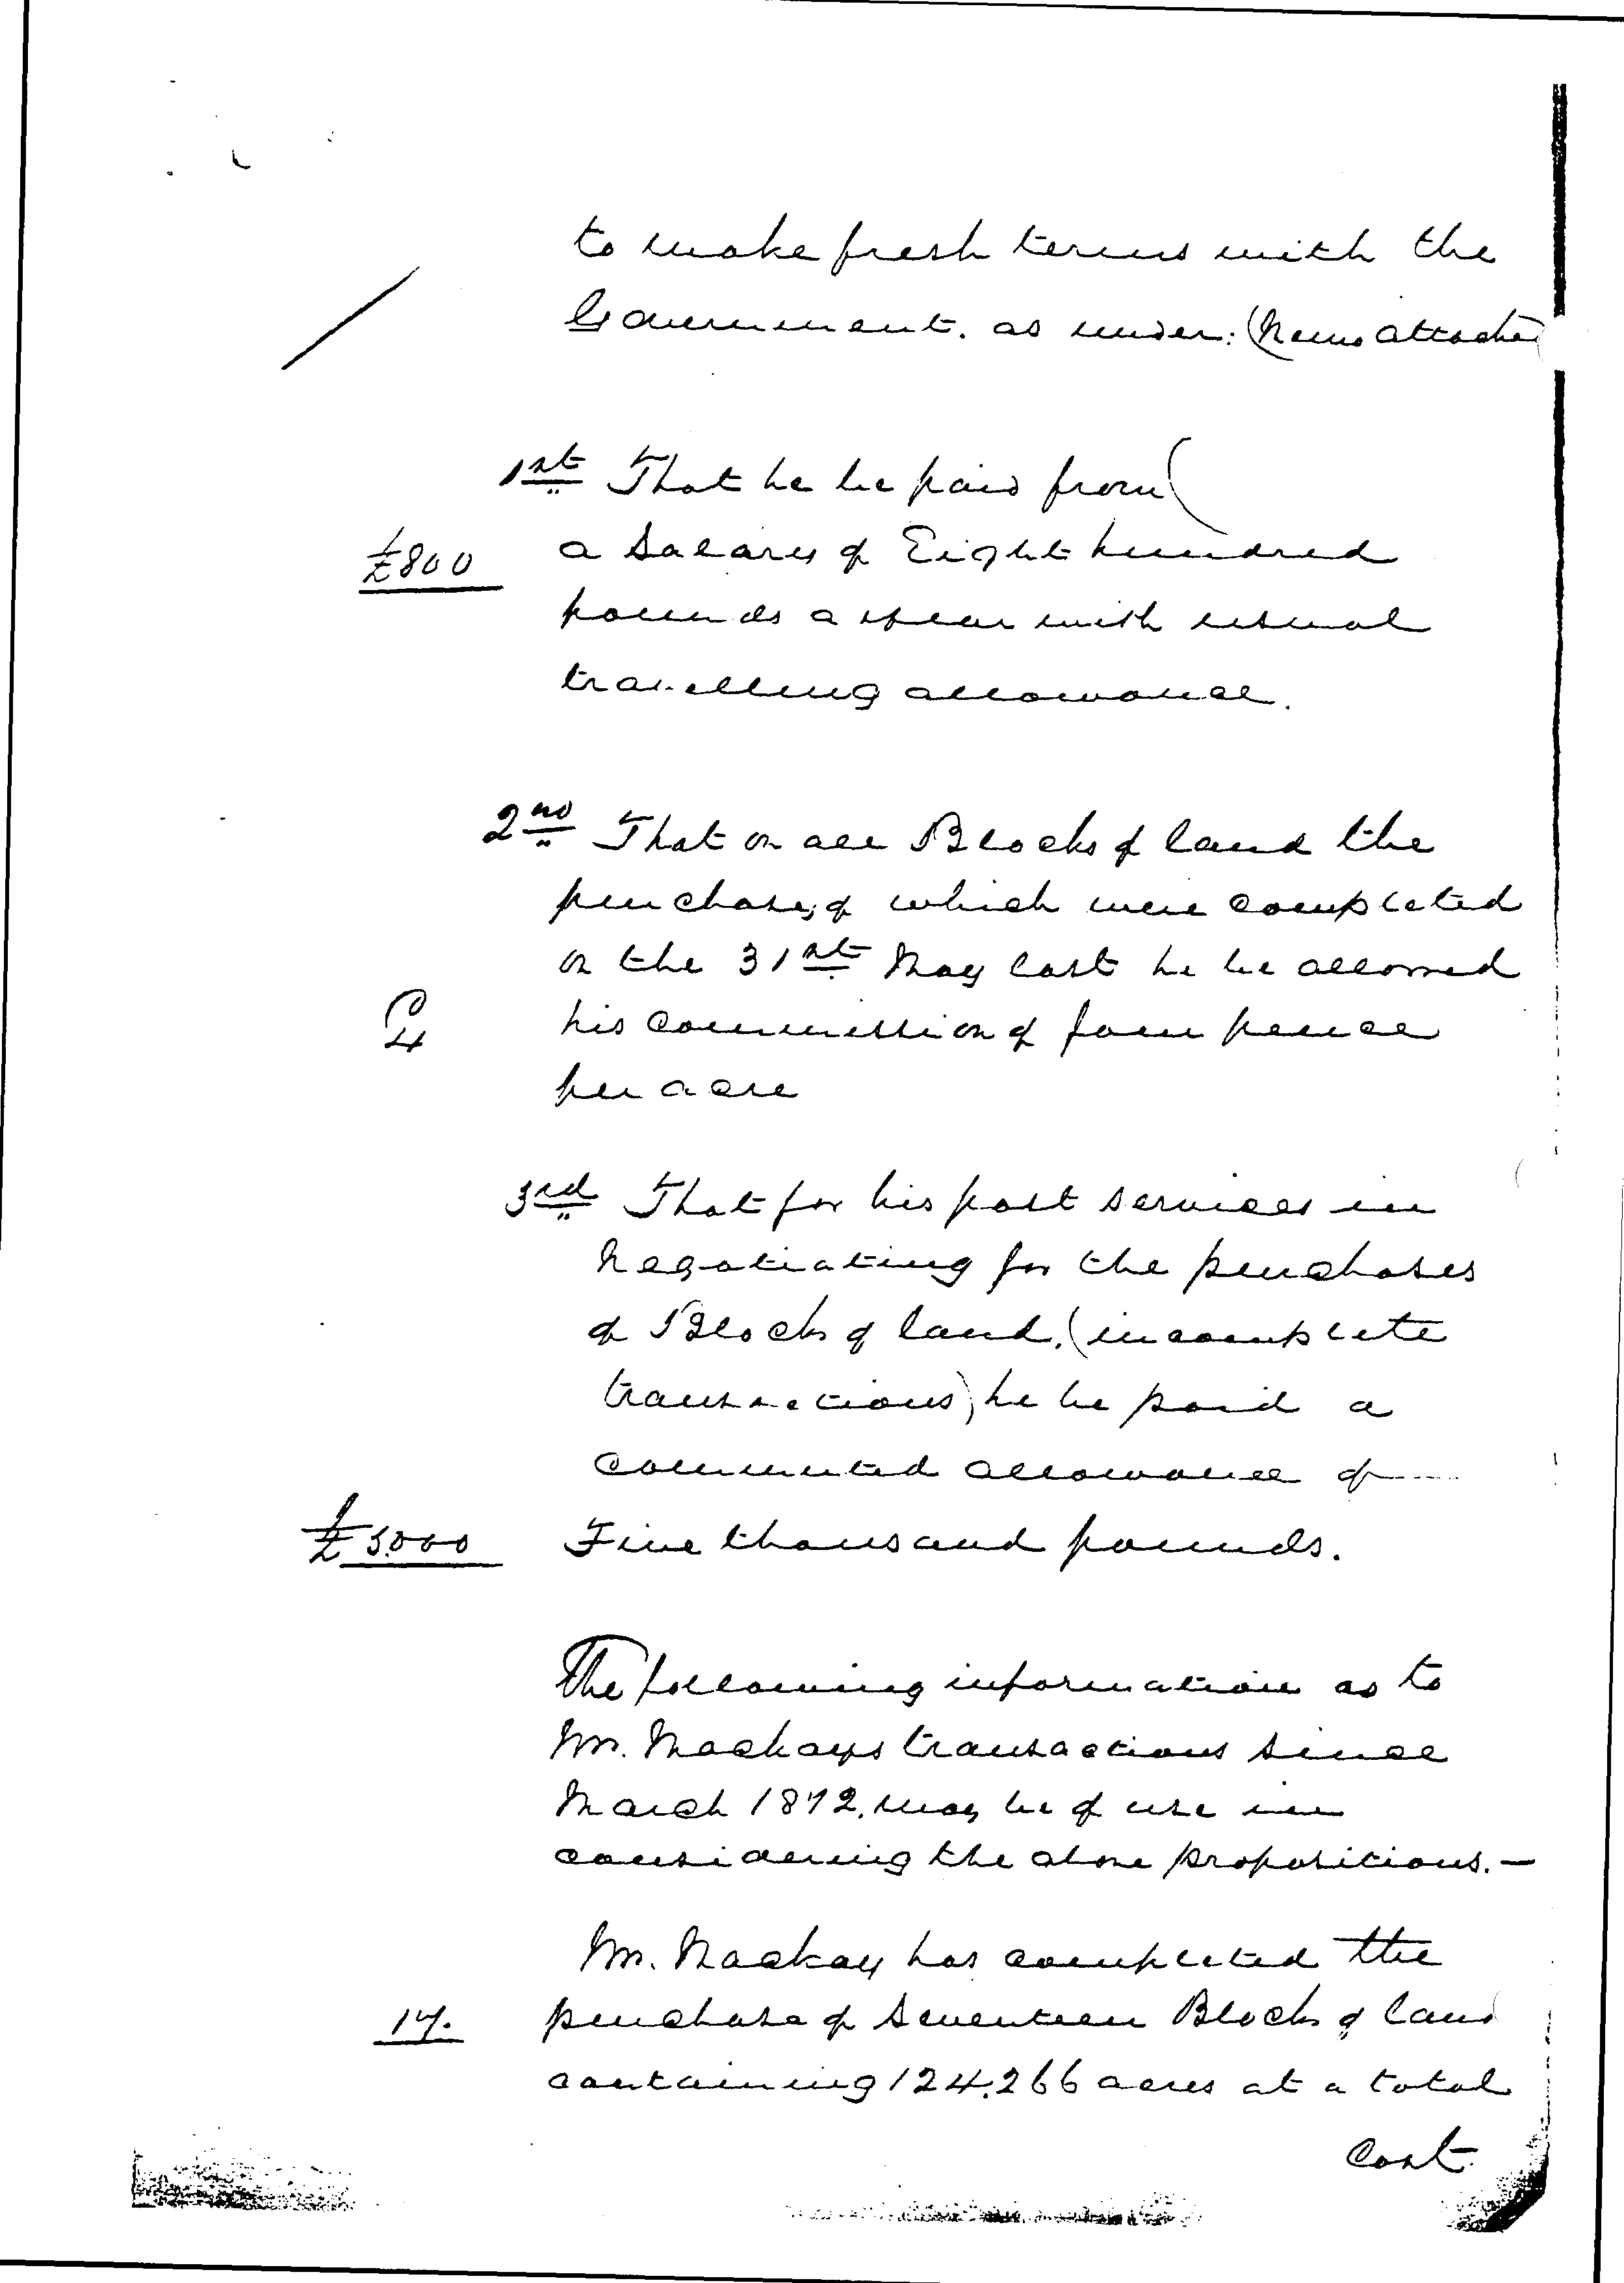 to make fresh terms with the
Government. as under: (Memo attached
1st That he be paid from (
£800
a Salary of Eight hundred
pounds a year with usual
travelling allowance.
2nd That on all Blocks of land the
purchases of which were completed
on the 31st May last he be allowed
4
his Commission of four pence
per acre
3rd That for his past services in
Negotiating for the purchases
of Blocks of land, (incomplete
transactions) he be paid a
commuted allowance of
£5000
Five thousand pounds.
The following information as to
Mr. Mackays transactions since
March 1872, may be of use in
considering the above propositions. —
Mr. Mackay has completed the
17.
purchase of Seventeen Blocks of land
containing 124,266 acres at a total
Cost